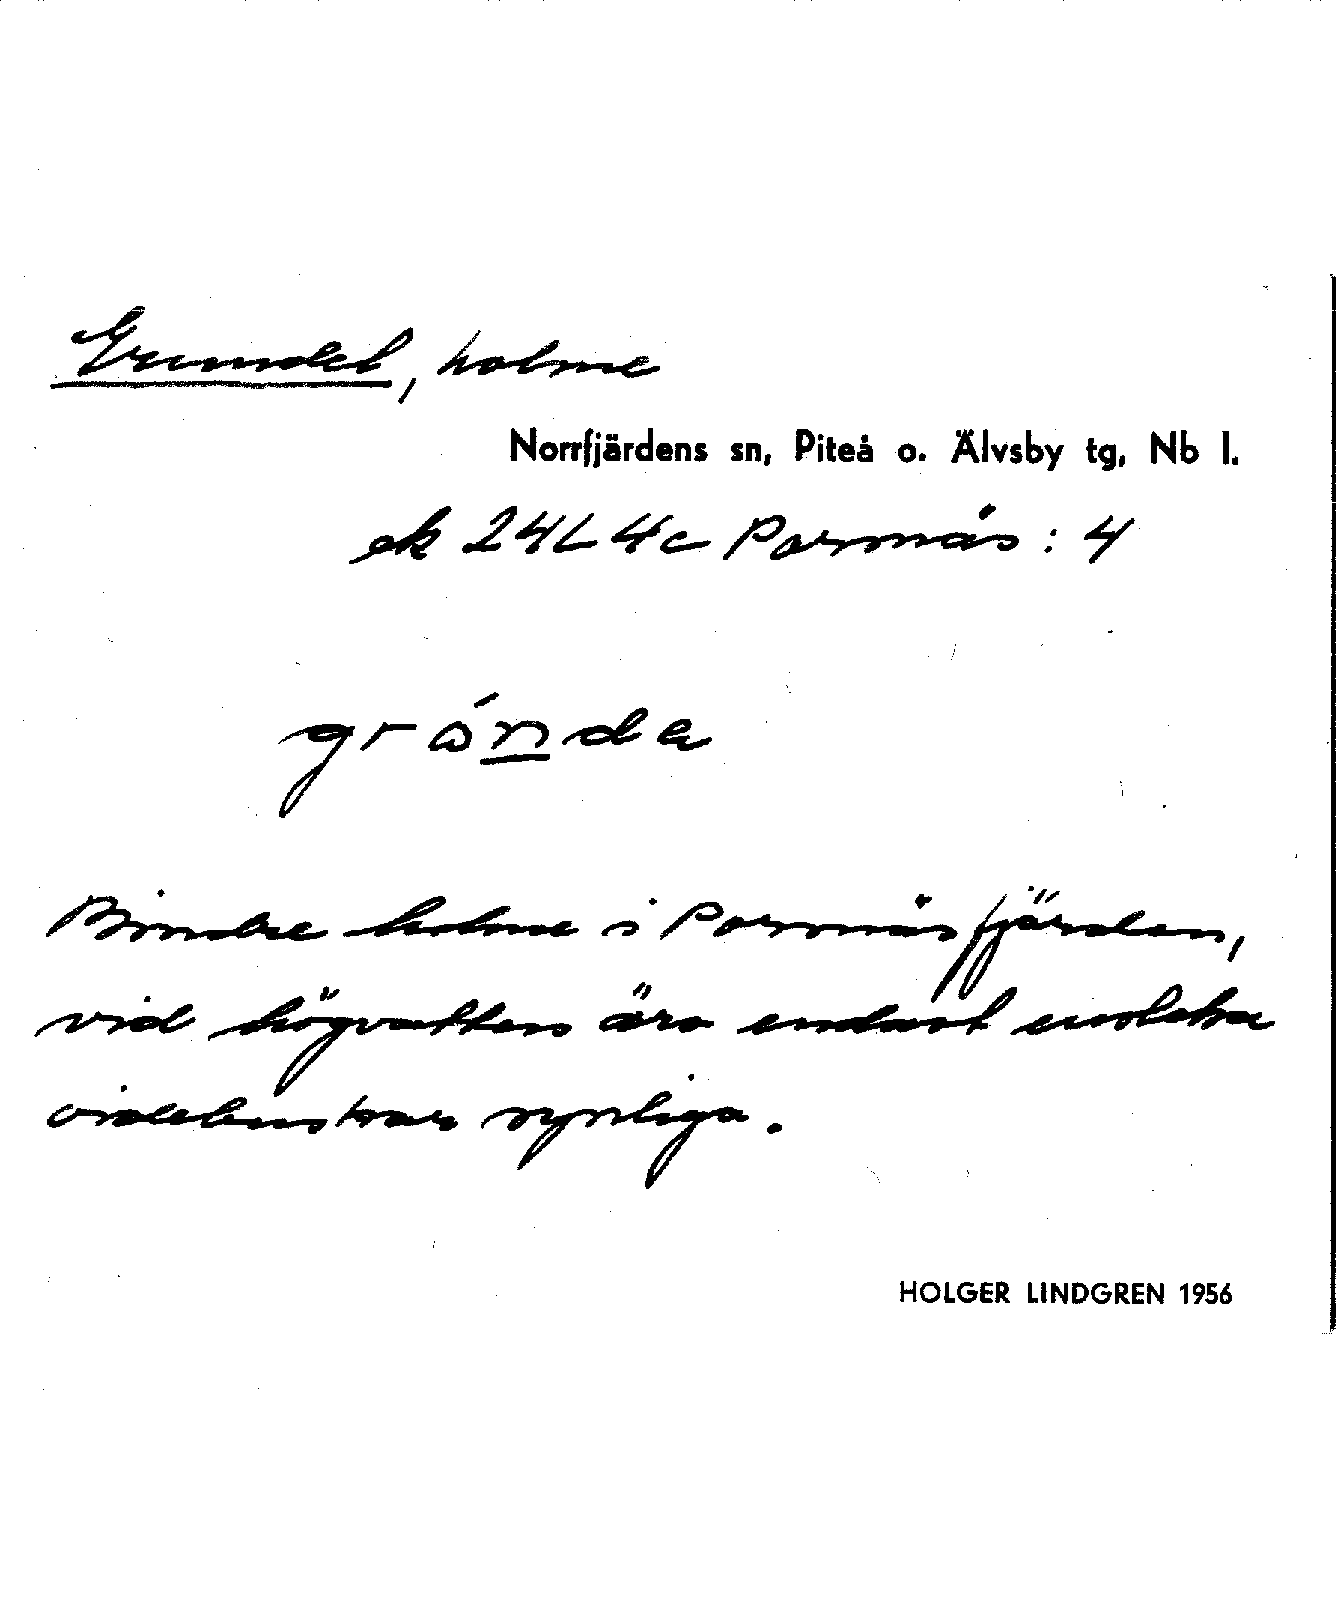 Grundet, holme
Norrfjärdens sn, Piteå o. Älvsby tg, Nb l.
ek 24L 4c Porsnäs : 4
gránda
Mindre holme i Porsnäsfjärden,
vid högvatten äro endast enstaka
videbuskar synliga.
HOLGER LINDGREN 1956